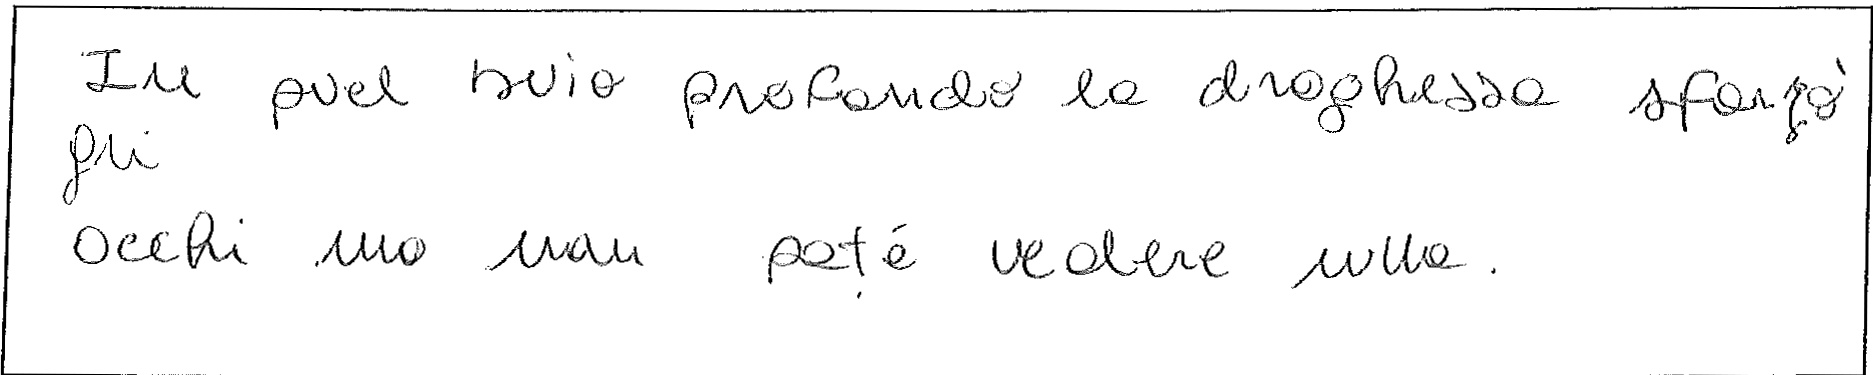 In quel buio profondo la draghessa sforzò
gli
occhi ma non poté vedere nulla.